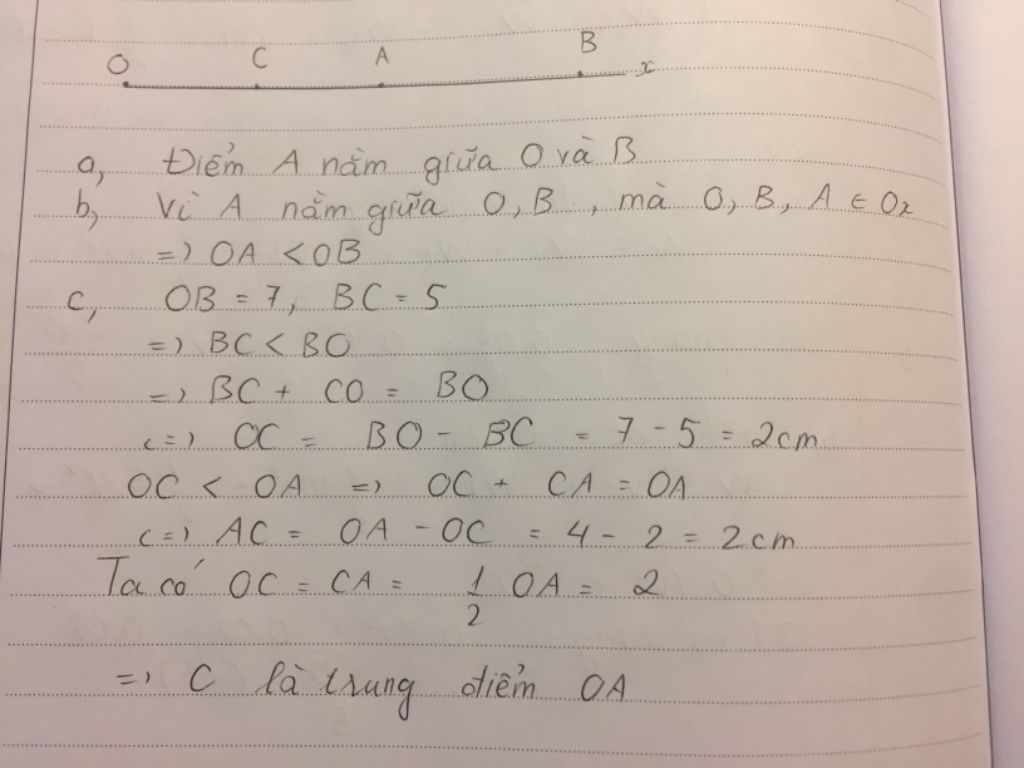 O C A B x
a, Điểm A nằm giữa O và B
b, Vì A nằm giữa O, B , mà O, B, A ∈ Ox
=) OA < OB
c, OB = 7, BC = 5
=) BC < BO
=) BC + CO = BO
(=) OC = BO - BC = 7 - 5 = 2cm
OC < OA =) OC + CA = OA
(=) AC = OA - OC = 4 - 2 = 2cm
Ta có OC = CA = 1/2 OA = 2
=) C là trung điểm OA